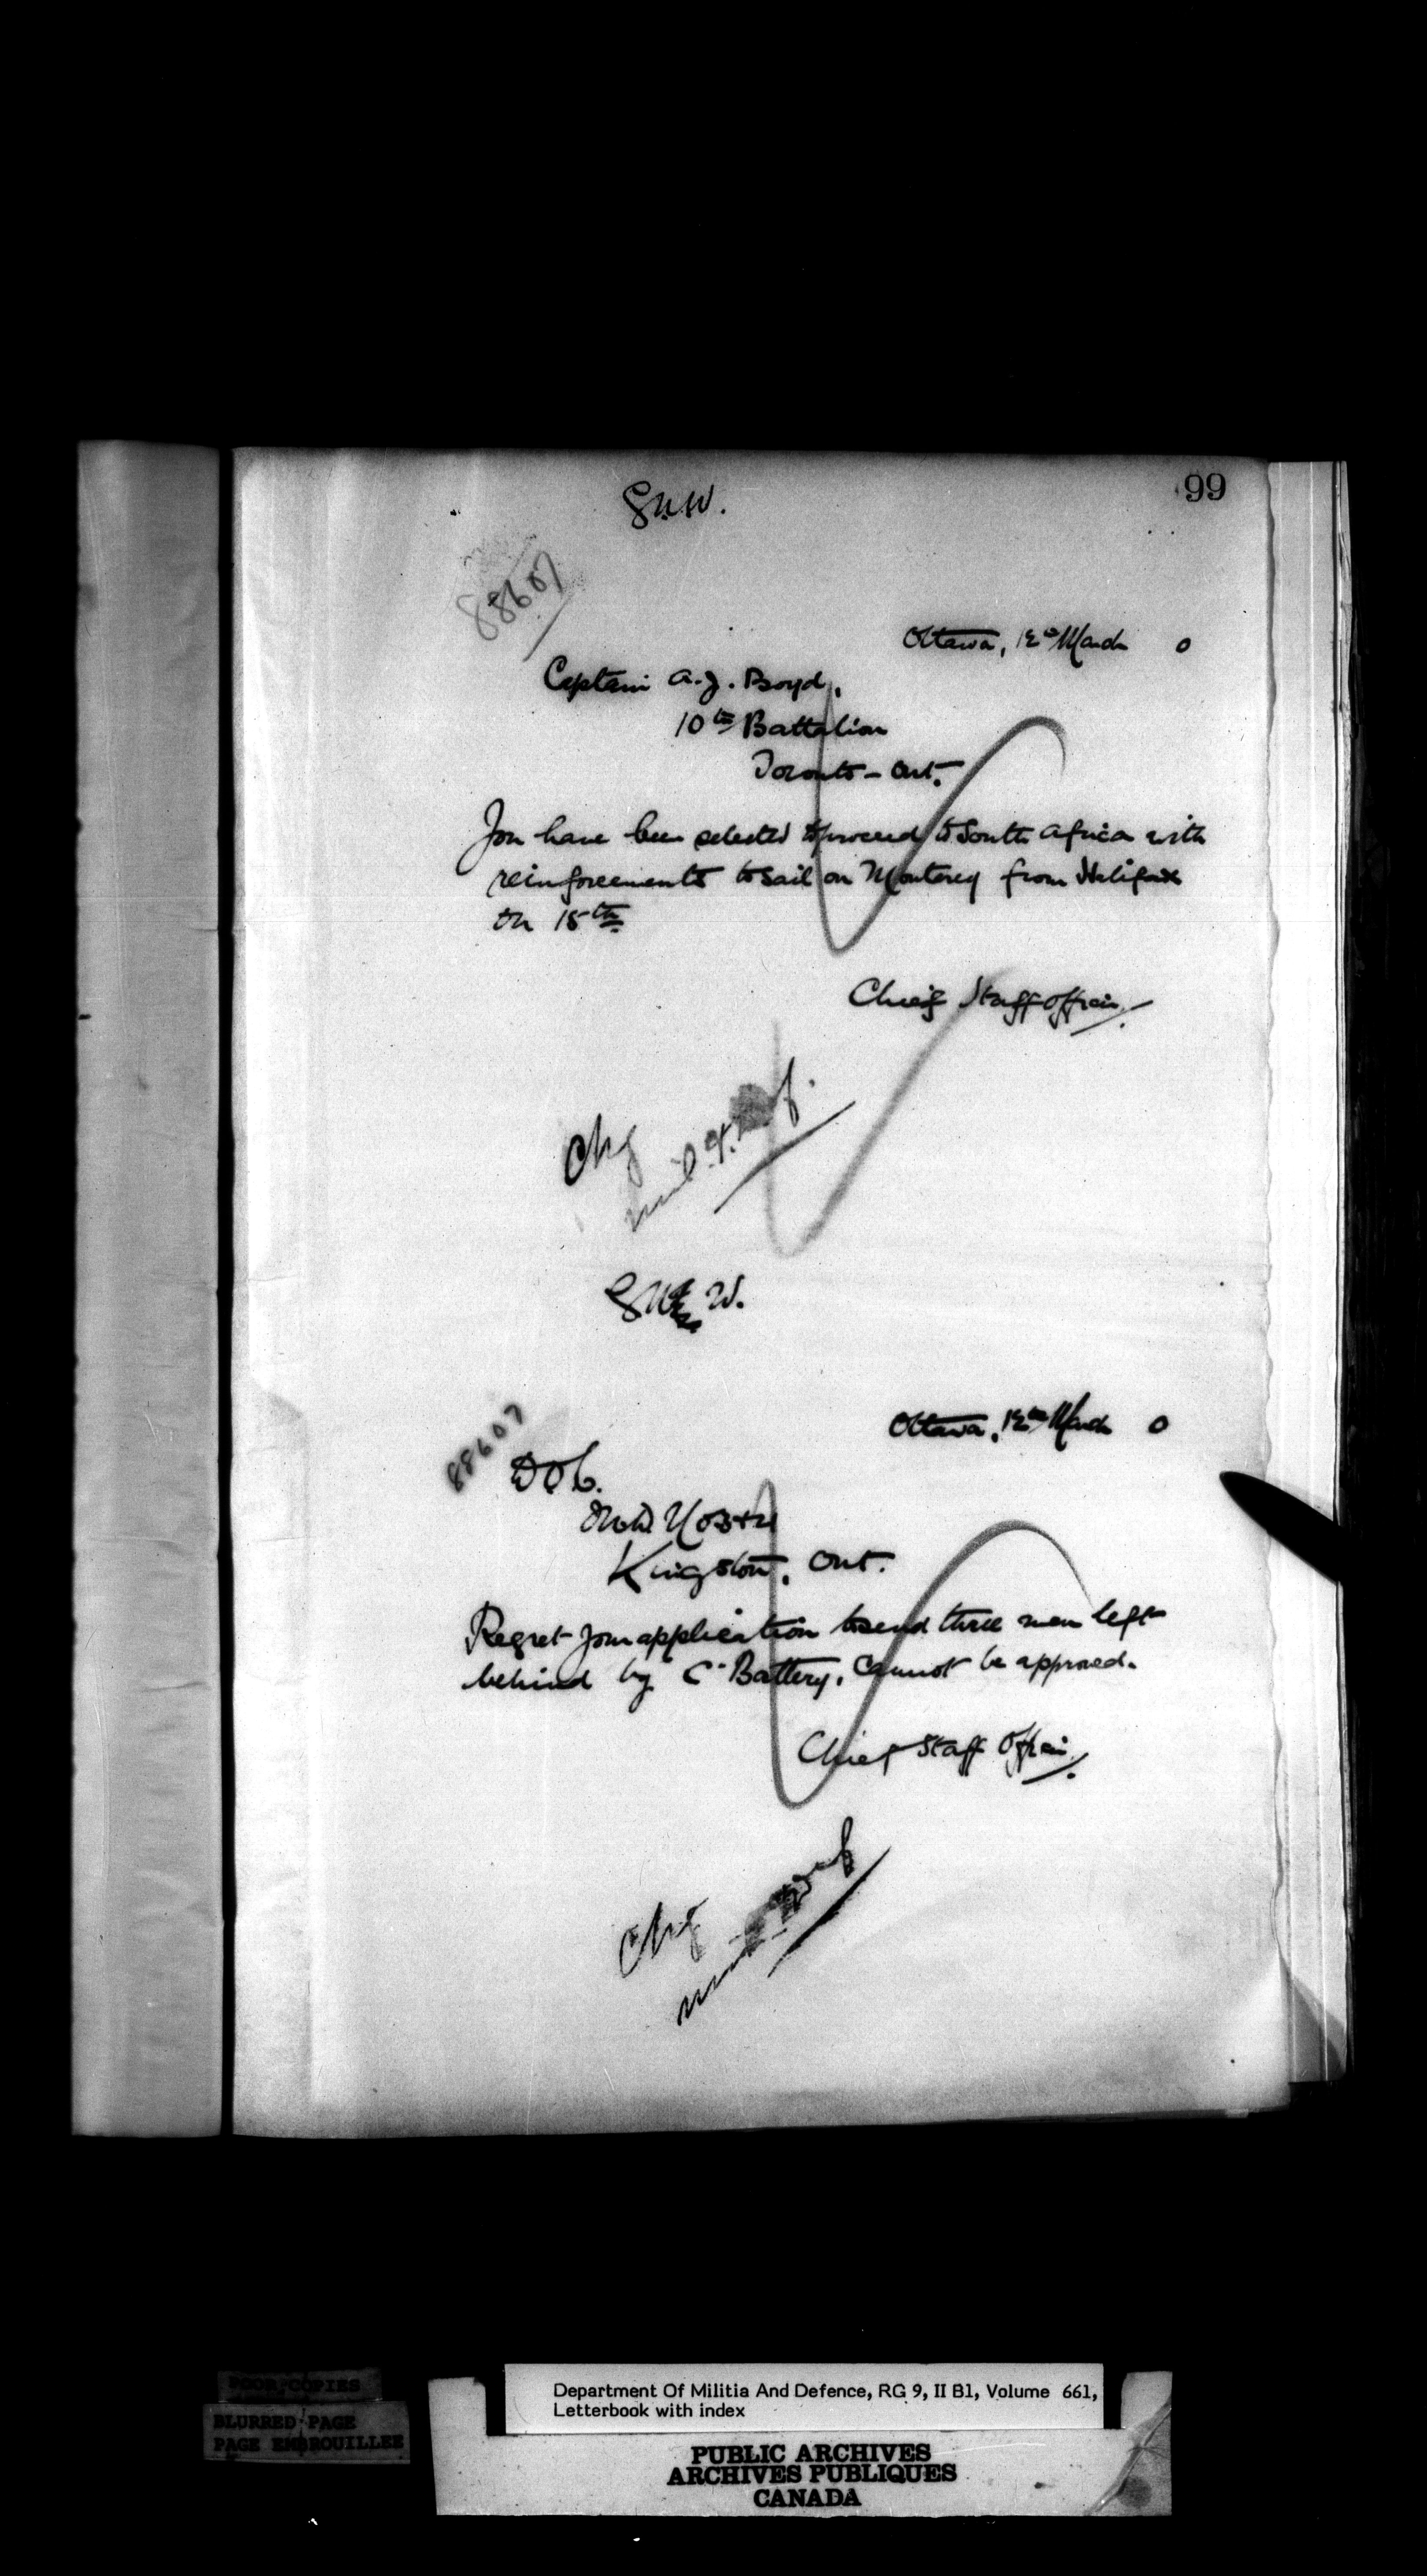 99
G.N.W.
88607
Ottawa, 12th March 0
Captain A. J. Boyd,
10th Battalion
Toronto - Ont.
You have been selected to proceed to South Africa with
reinforcements to sail on Monterey from Halifax
on 15th
Chief Staff Officer.
Chg
G.N. W.
88607
Ottawa, 12th March 0
D O C.
Kingston, Ont.
Regret your application to send three men left
behind by "C" Battery, cannot be approved.
Chief Staff Officer.
Chg
POOR COPIES
BLURRED PAGE
PAGE EMBROUILLEE
Department Of Militia And Defence, RG 9, II B1, Volume 661,
Letterbook with index
PUBLIC ARCHIVES
ARCHIVES PUBLIQUES
CANADA